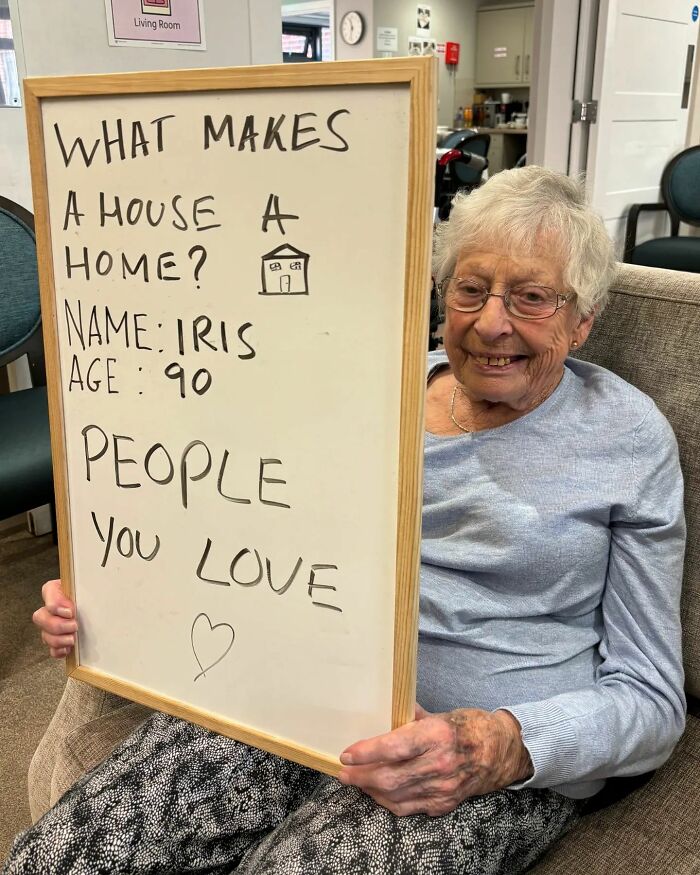 Living Room
WHAT MAKES
A HOUSE A
HOME?
NAME: IRIS
AGE : 90
PEOPLE
YOU LOVE